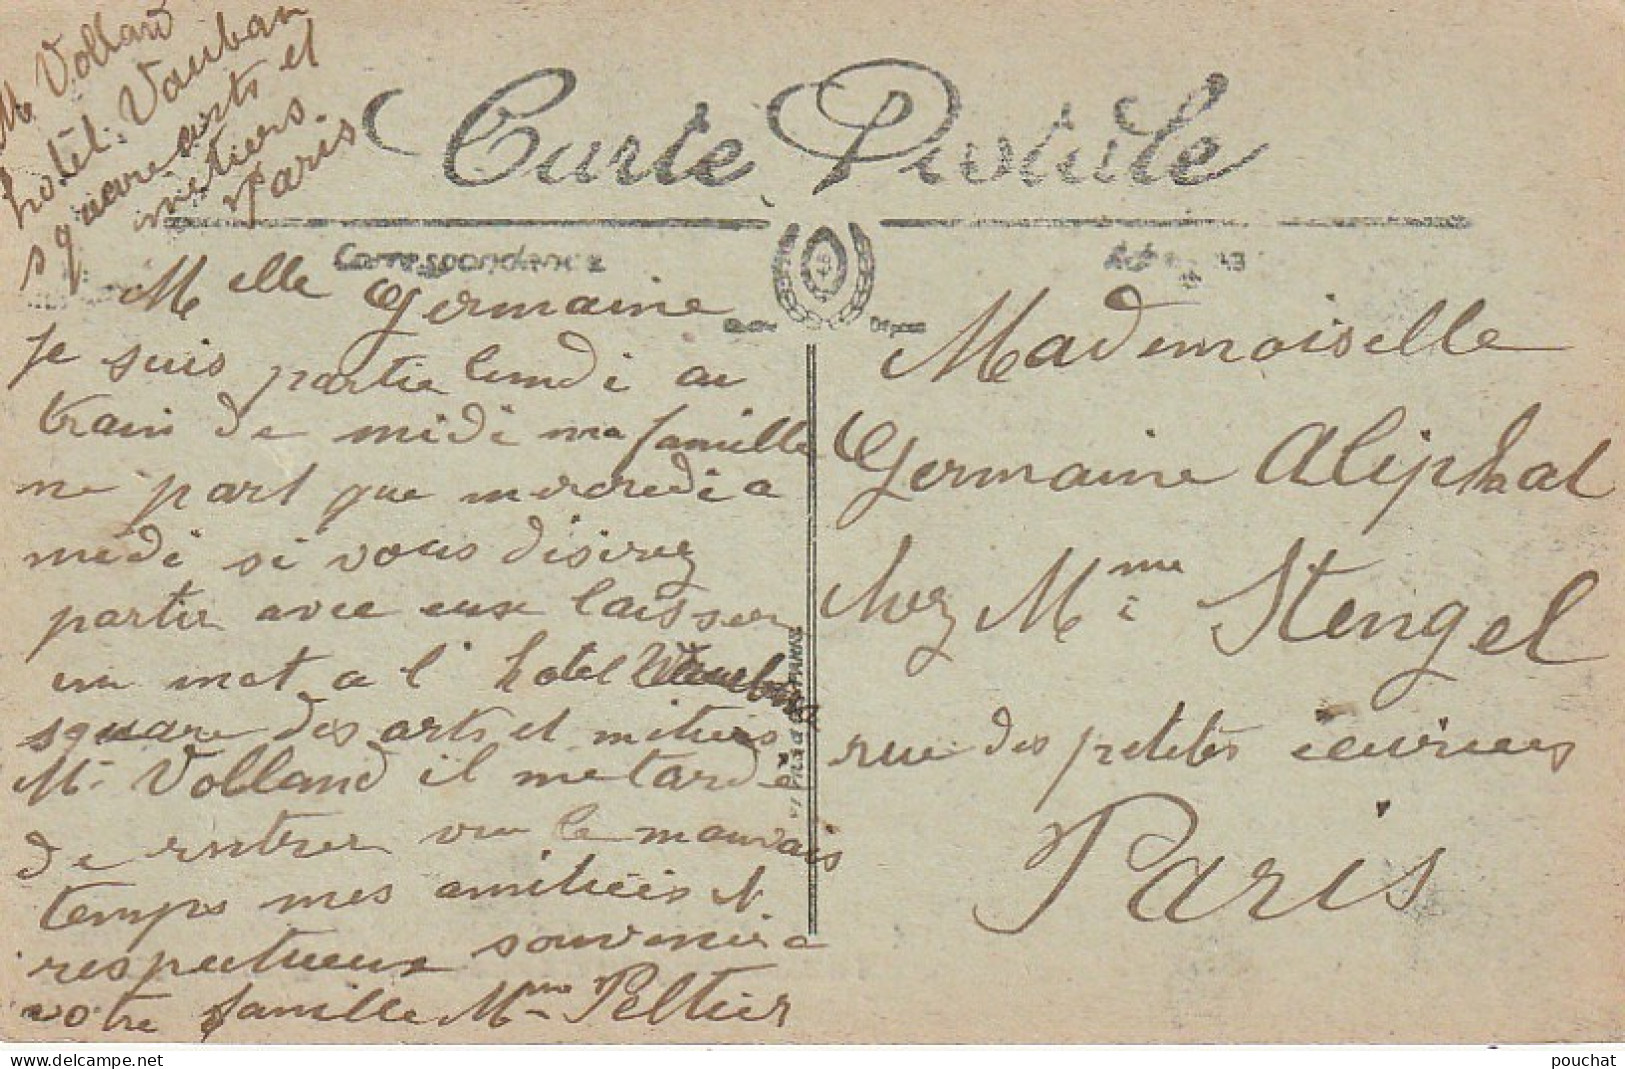 M. Volland
hotel. Vauban
square arts et
metiers.
Paris
Carte Postale
Correspondance
Melle Germaine
Je suis partie lundi au
train de midi ma famille
ne part que mercredi a
midi si vous disirez
partir avec eux laisser
un mot a l'hotel Vauban
square des arts et mitiers
Mr Volland il me tarde
de rentrer vu le mauvais
temps mes amitiés et
respectueux souvenir a
votre famille Mme Peltier
Mademoiselle
Germaine Aliphat
chez Mme Stengel
rue des petites écuries
Paris
www.delcampe.net
pouchat